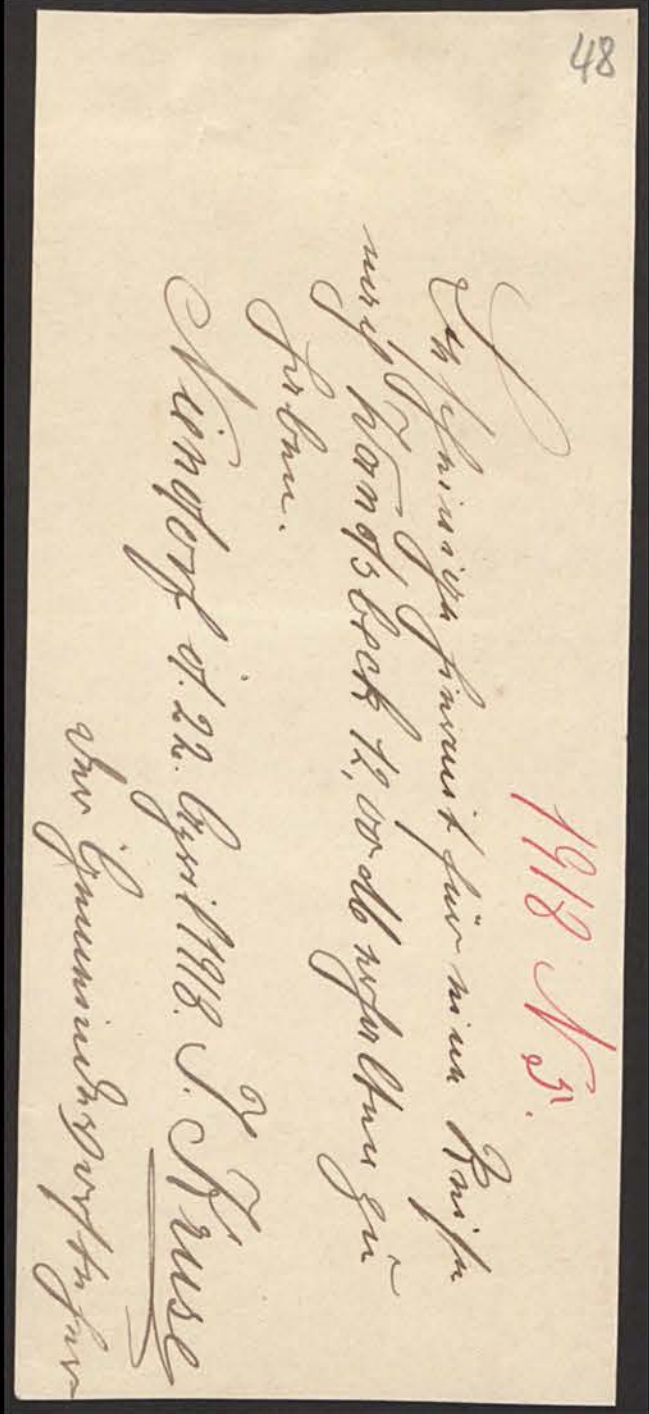 48
1918 N 5.
Bescheinige hiermit für eine Reise
nach Wandsbeck 12,00 M erhalten zu
haben.
Niendorf d. 22. April 1918. J. Kruse
Der Gemeindevorsteher